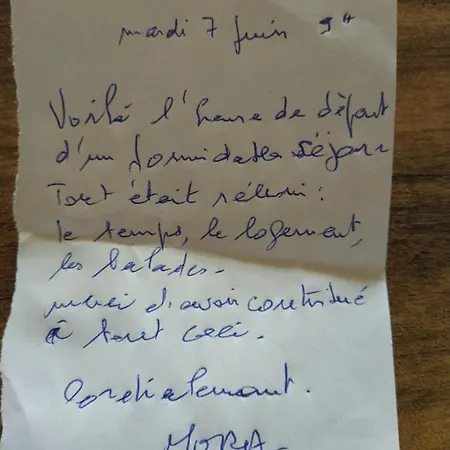 mardi 7 juin 9H
Voilà l'heure de départ
d'un formidable séjour
Tout était réuni :
le temps, le logement,
les balades.
merci d'avoir contribué
à tout ceci.
Cordialement.
MORA